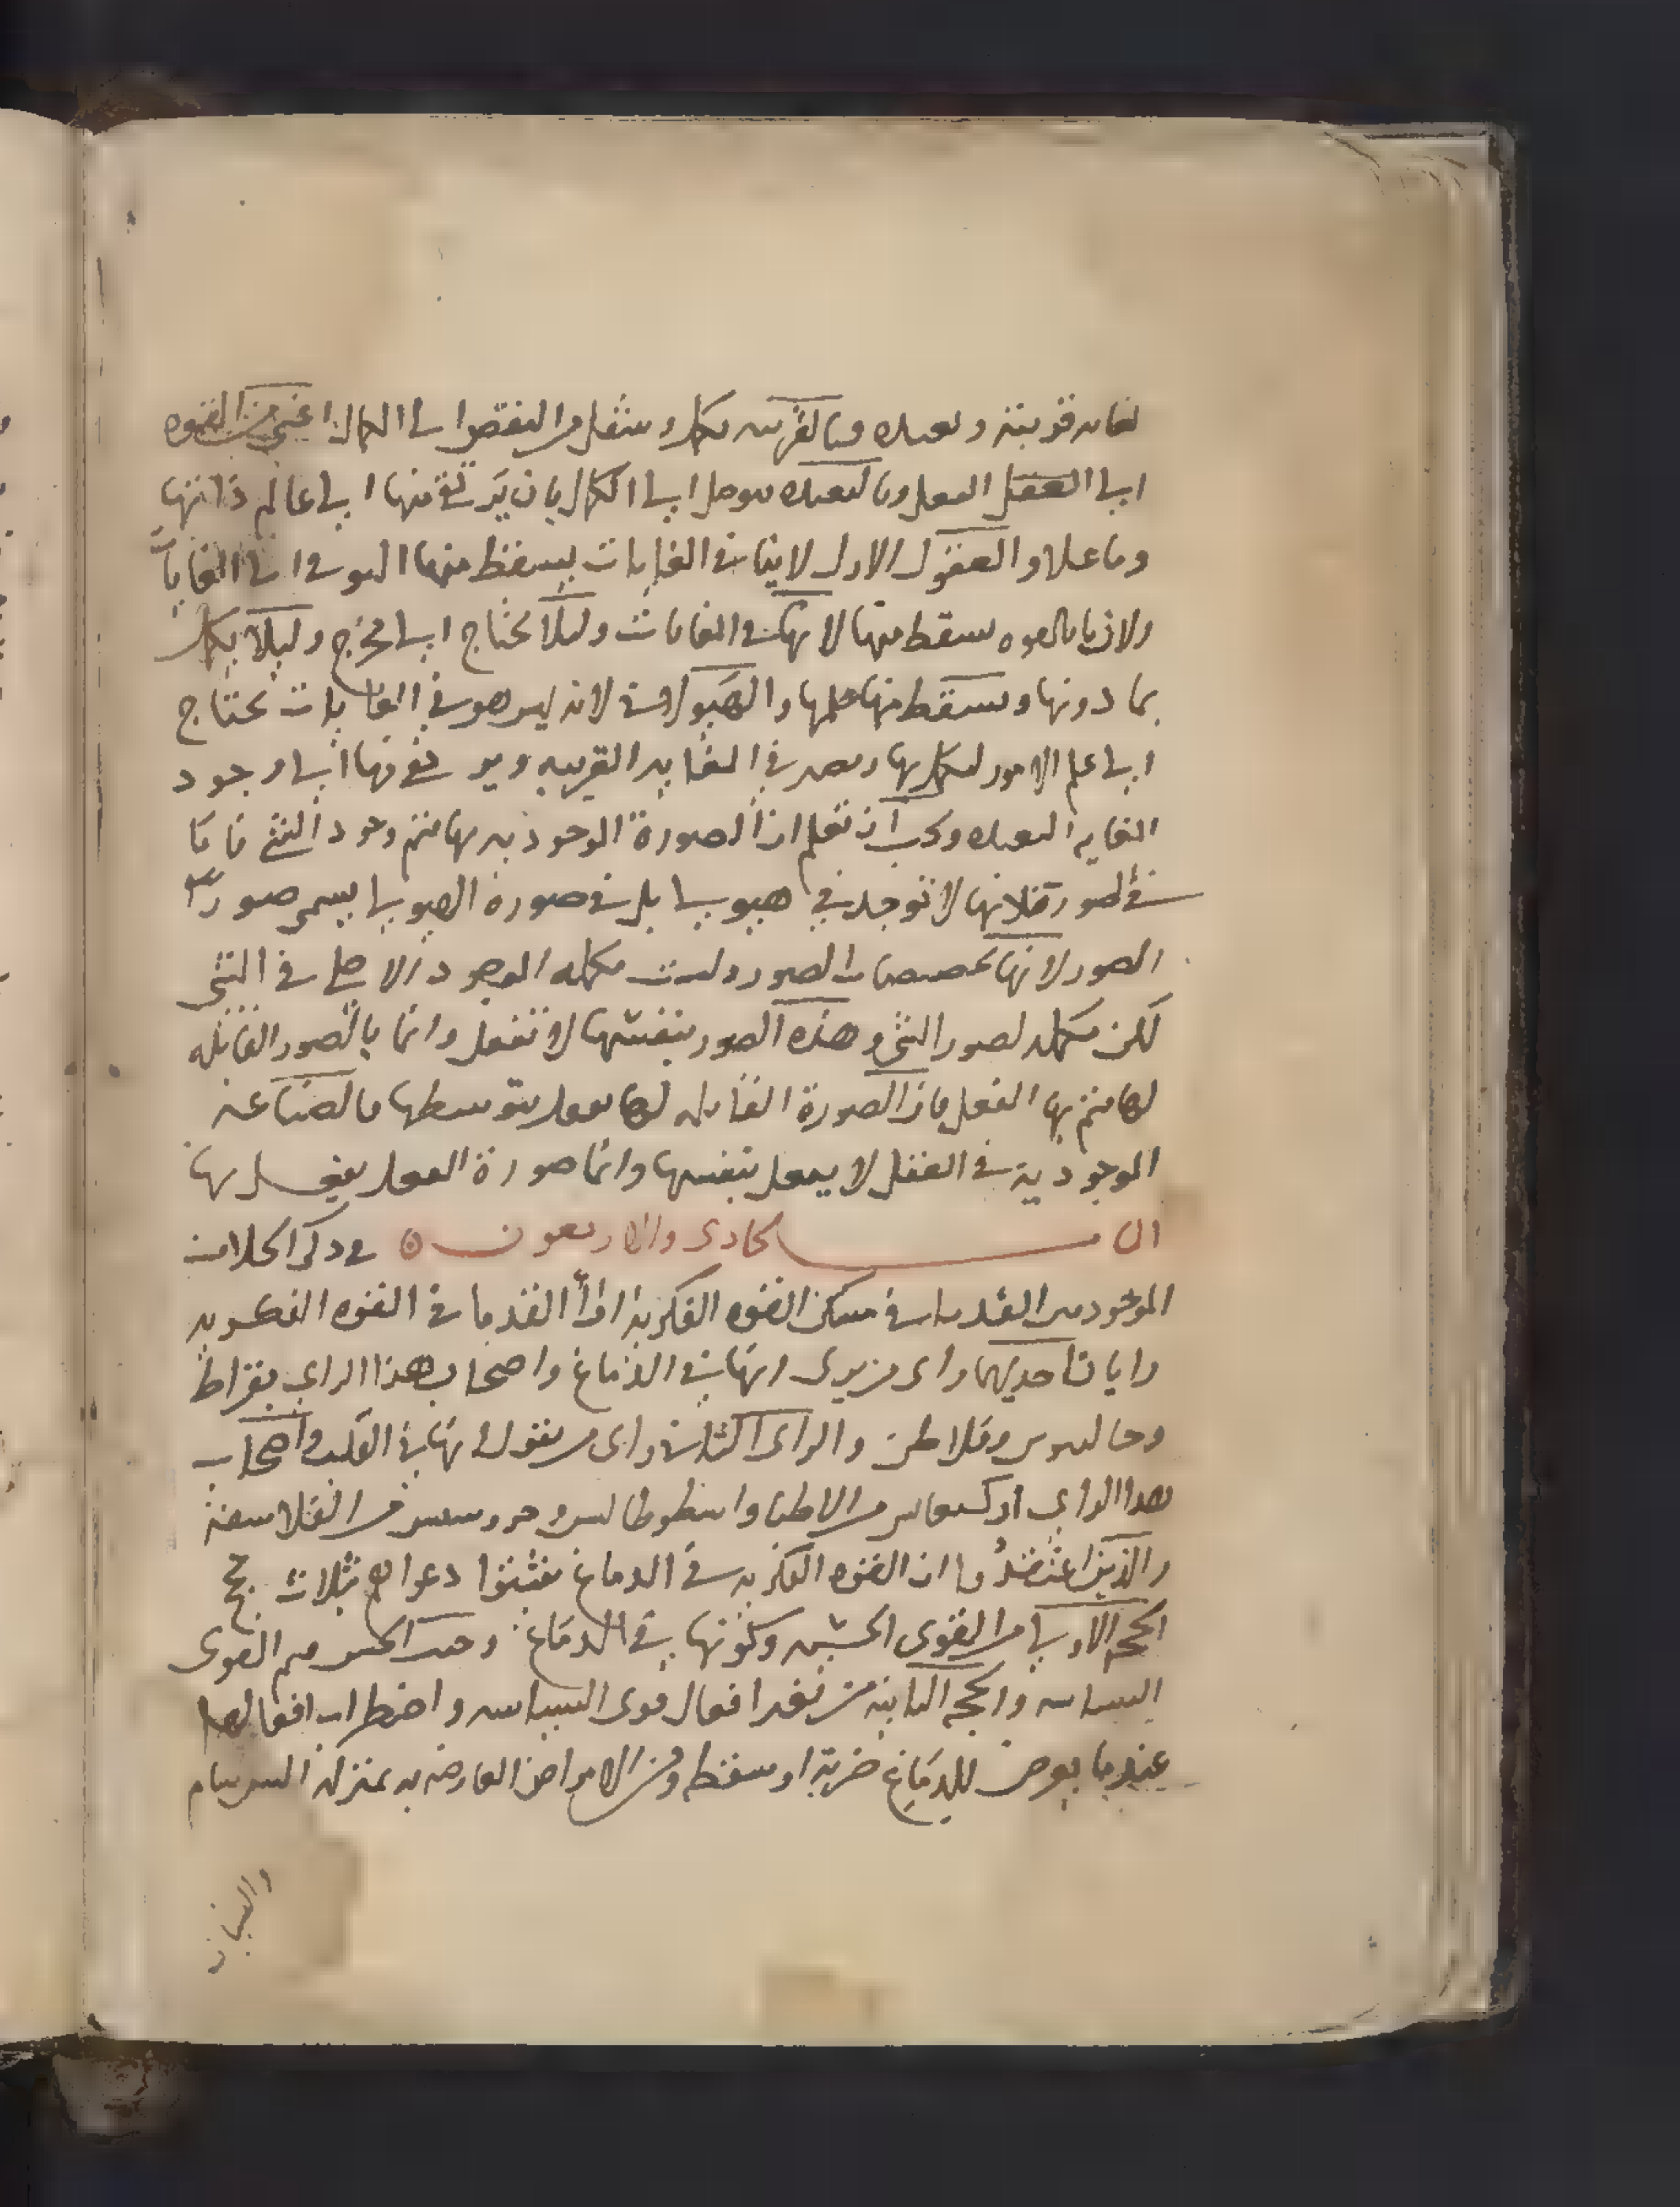 لغايه قريبة وبعيده وبالقريبه تكمل وتنتقل من النقص الى الكمال اعني من القوه
الى العقل الفعل وبالبعيده توصل الى الكمال بان يرتقى منها الى عالم ذاتها
وما علله والعقول الاول لاينا فى الغايات يسقط منها الهيولى اى الغايات
ولان ما بالقوه يسقط منها لا نها فى الغايات وليلا يحتاج الى مخرج وليلا يكمل
بما دونها ويسقط منها علمها والهيولانى لانه ليس هو فى الغايات يحتاج
الى علم الامور ليكمل بها ويصير فى الغايه القريبه ويرتقى منها الى وجود
الغايه البعيده ويجب ان تعلم ان الصورة الوجوديه بها يتم وجود الشي فاما
فى لصورة فلانها لا توجد فى هيولى بل فى صورة الهيولى يسمى صور
الصور لانها تخصصات الصور وليست مكمله الوجود الاصلى فى الشى
لكن مكمله لصور الشى وهذه الصور بنفسها لا تفعل وانما بالصور القابله
لها يتم بها الفعل فان الصورة القابله لها تفعل بتوسطها فالصناعه
الموجودية فى العقل لا يفعل بنفسها وانما صورة العقل يفعل بها
الباب الحادى والاربعون فى ذكر الخلاف
الموجود بين القدما فى مسكن القوه الفكرية ارأ القدما فى القوه الفكريه
رايان احديهما راى من يرى انها فى الدماغ واصحاب هذا الراى بقراط
وجالينوس وفلاطن والراى الثانى راى من يقول انها فى القلب واصحاب
هذا الراى من الاطبا وارسطوطاليس وخروسيس من الفلاسفة
والذين اعتضدوا ان القوه الفكريه فى الدماغ يثبتوا دعواهم بثلاث حجج
الحجه الاولى من القوى الحسيه وكونها فى الدماغ وحيث الحس فثم القوى
السياسيه والحجه الثانيه من تغير افعال قوى السياسه واضطراب افعالها
عندما يعرض للدماغ ضربة او سقطه ومن الامراض العارضه به بمنزله السرسام
والسبات